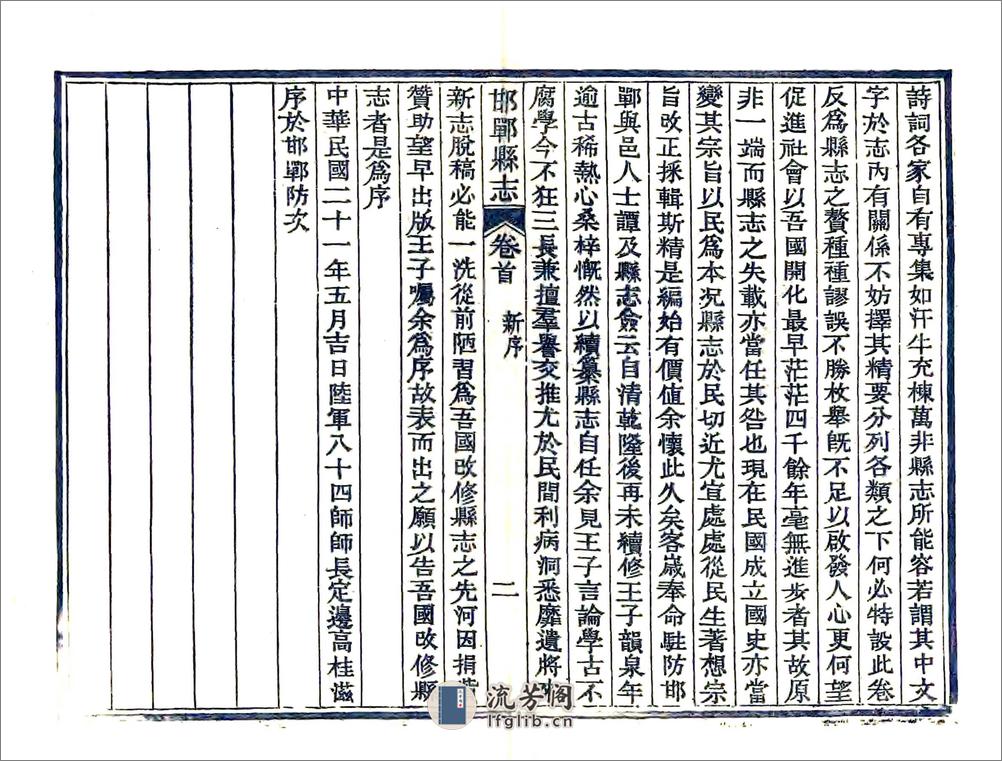 詩詞各家自有專集如汗牛充棟萬非縣志所能容若謂其中文
字於志內有關係不妨擇其精要分列各類之下何必特設此卷
反爲縣志之贅種種謬誤不勝枚舉旣不足以啟發人心更何望
促進社會以吾國開化最早茫茫四千餘年毫無進步者其故原
非一端而縣志之失載亦當任其咎也現在民國成立國史亦當
變其宗旨以民爲本况縣志於民切近尤宜處處從民生著想宗
旨改正採輯斯精是編始有價值余懷此久矣客歲奉命駐防邯
鄲與邑人士譚及縣志僉云自清乾隆後再未續修王子韻泉年
逾古稀熱心桑梓慨然以續纂縣志自任余見王子言論學古不
腐學今不狂三長兼擅羣譽交推尤於民間利病洞悉靡遺將
邯鄲縣志 卷首 新序 二
新志脫稿必能一洗從前陋習爲吾國改修縣志之先河因捐
贊助望早出版王子囑余爲序故表而出之願以告吾國改修縣
志者是爲序
中華民國二十一年五月吉日陸軍八十四師師長定邊高桂滋
序於邯鄲防次
流芳阁
lfglib.cn